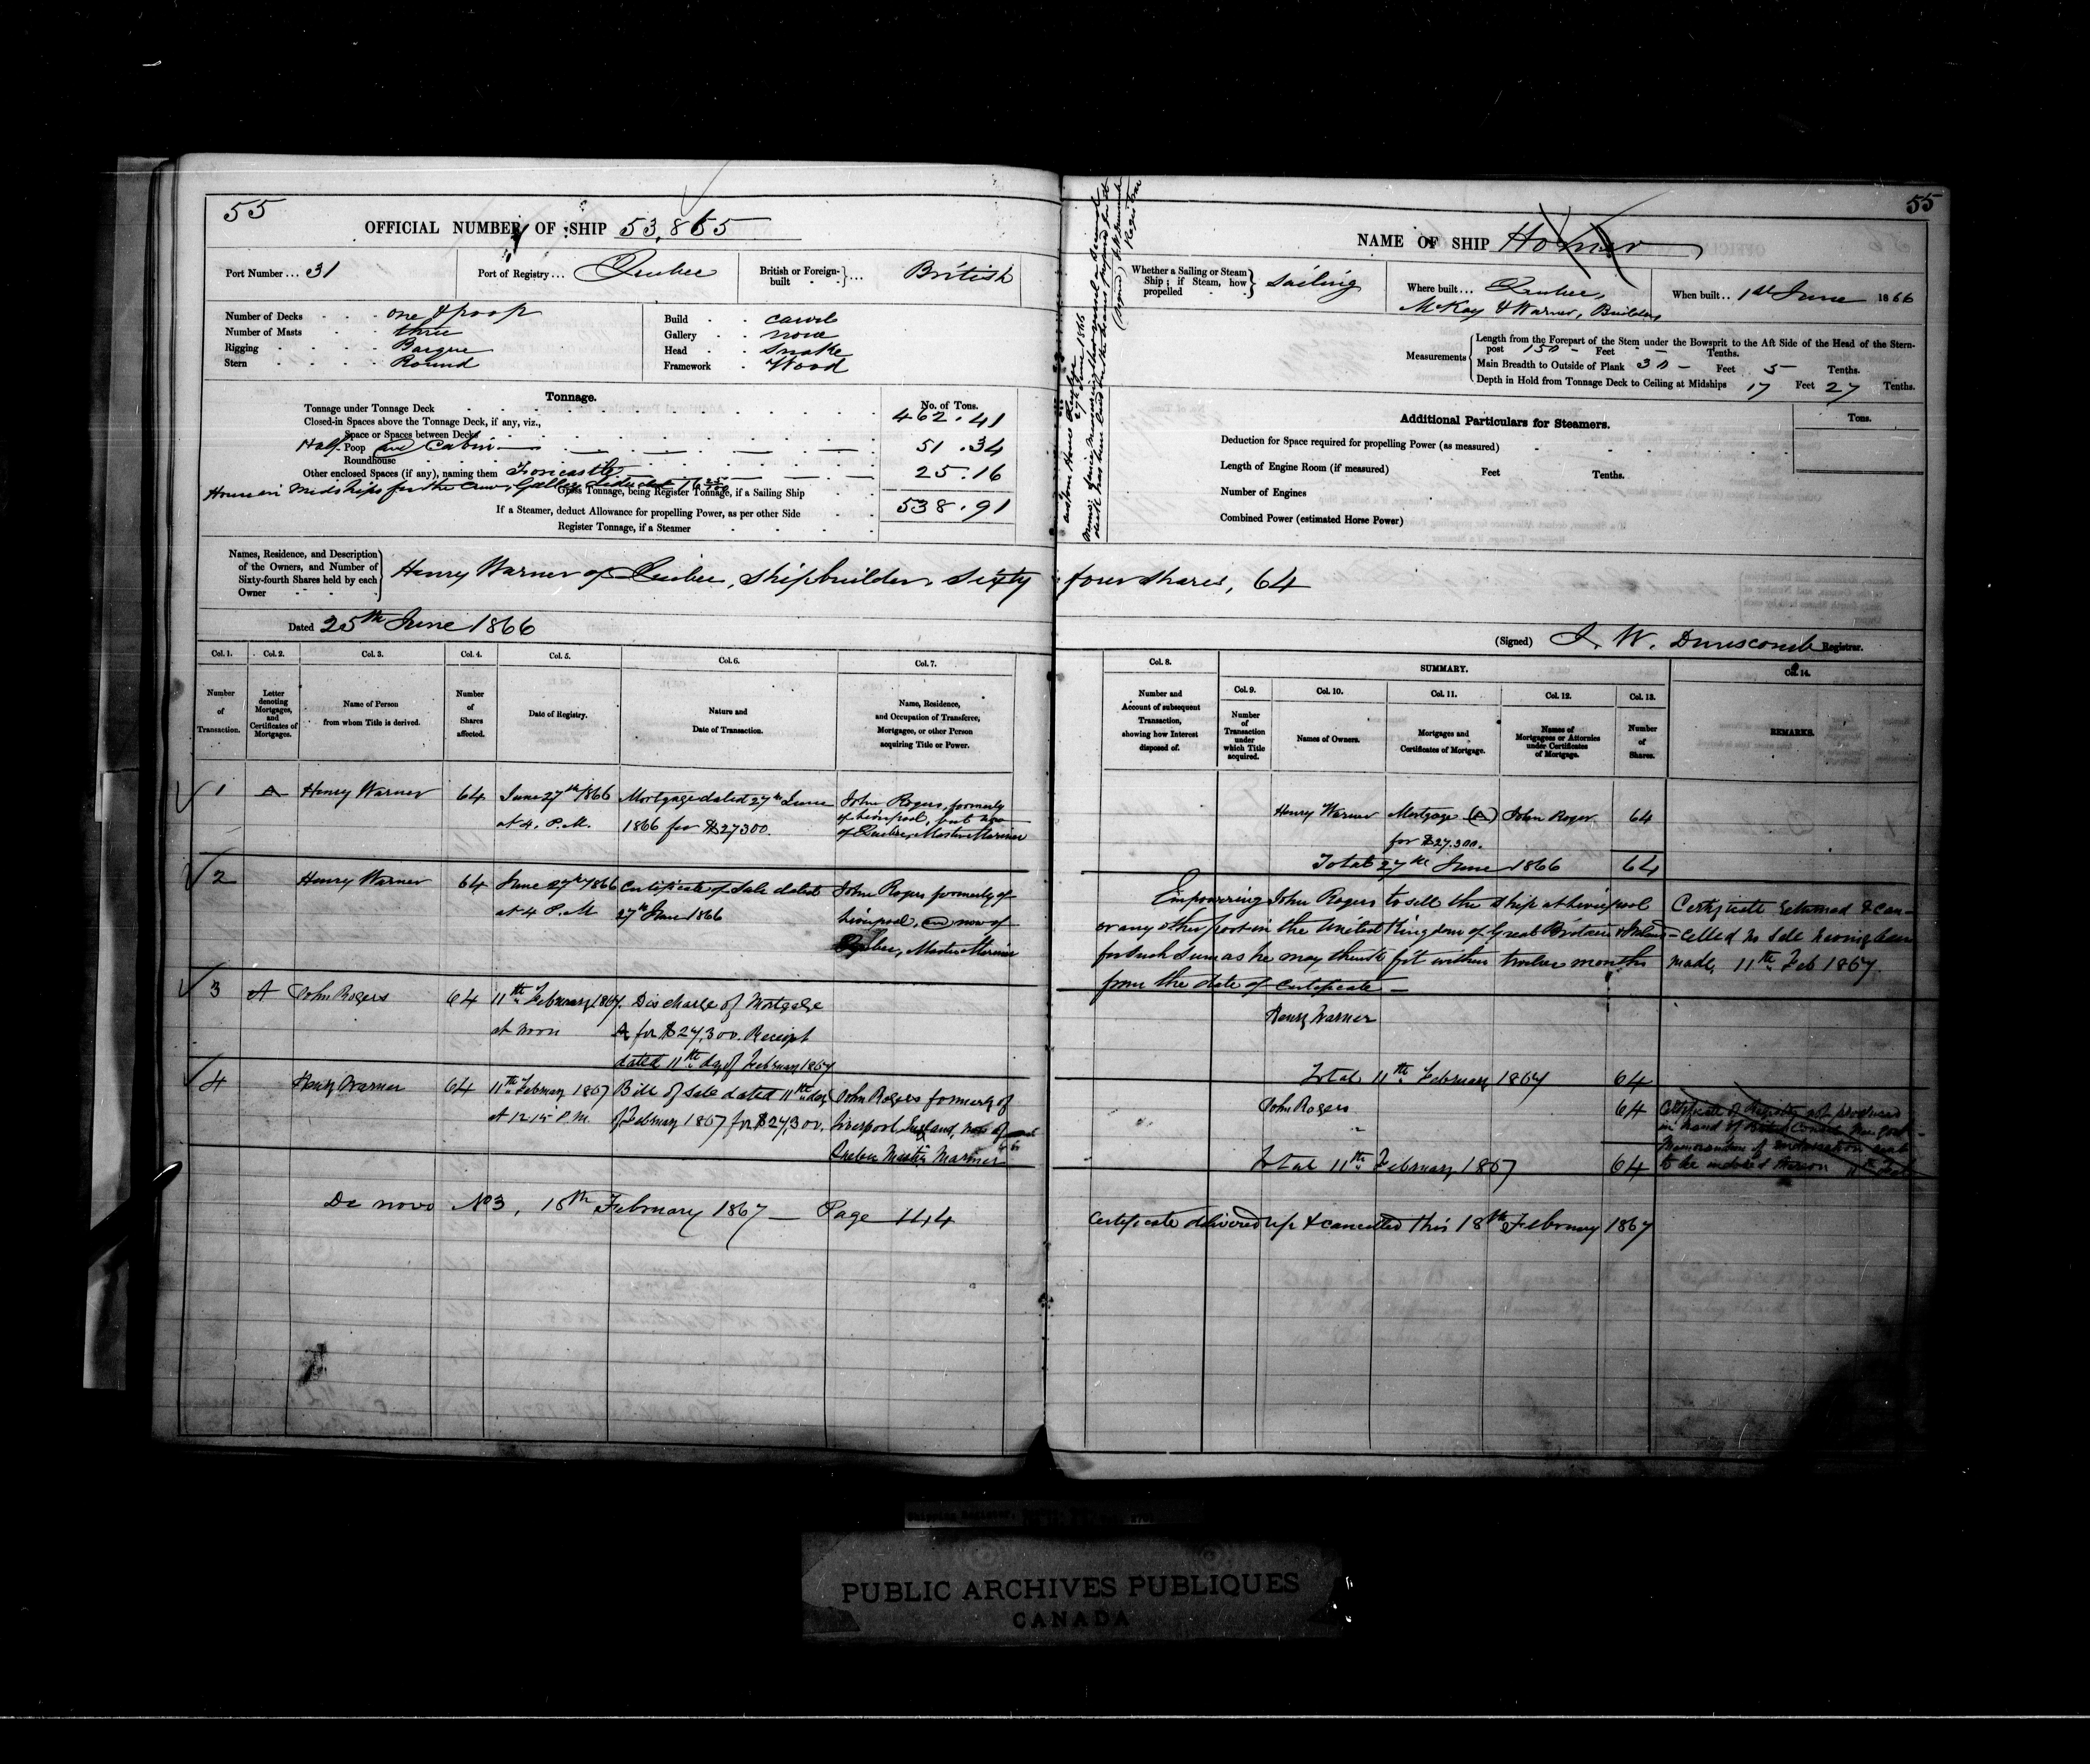 55
OFFICIAL NUMBER OF SHIP 53,865
Port Number ... 31
Port of Registry ... Quebec
British or Foreign-built ... British
Number of Decks one & poop
Number of Masts three
Rigging Barque
Stern Round
Build carvel
Gallery none
Head Snake
Framework Wood
Tonnage.
No. of Tons.
Tonnage under Tonnage Deck 462.41
Closed-in Spaces above the Tonnage Deck, if any, viz.,
Space or Spaces between Decks
Half Poop and Cabin 51.34
Roundhouse
Other enclosed Spaces (if any), naming them Forecastle 25.16
House in Midships for the Crew, Galley
Gross Tonnage, being Register Tonnage, if a Sailing Ship 538.91
If a Steamer, deduct Allowance for propelling Power, as per other Side
Register Tonnage, if a Steamer
Names, Residence, and Description
of the Owners, and Number of
Sixty-fourth Shares held by each
Owner
Henry Warner of Quebec, Shipbuilder, Sixty four shares, 64
Dated 25th June 1866
Col. 1. Col. 2. Col. 3. Col. 4. Col. 5. Col. 6. Col. 7.
Number of Transaction.
Letter denoting Mortgages, and Certificates of Mortgages.
Name of Person from whom Title is derived.
Number of Shares affected.
Date of Registry.
Nature and Date of Transaction.
Name, Residence, and Occupation of Transferee, Mortgagee, or other Person acquiring Title or Power.
1 A Henry Warner 64 June 27th 1866 Mortgage dated 27th June John Rogers, formerly
at 4. P.M. 1866 for $27300. of Liverpool, but now
of Quebec, Master Mariner
2 Henry Warner 64 June 27th 1866 Certificate of Sale dated John Rogers formerly of
at 4 P.M 27th June 1866 Liverpool, and now of
Quebec, Master Mariner
3 A John Rogers 64 11th February 1867. Discharge of Mortgage
at noon A for $27,300. Receipt
dated 11th day of February 1867
4 Henry Warner 64 11th February 1867 Bill of Sale dated 11th day John Rogers formerly of
at 12.15 P.M. of February 1867 for $27,300. Liverpool, England, now of
Quebec Master Mariner
De novo No 3, 18th February 1867 — Page 144
55
NAME OF SHIP Homer
Whether a Sailing or Steam
Ship; if Steam, how
propelled
Sailing
Where built ... Quebec,
McKay & Warner, Builders
When built .. 1st June 1866
Measurements
Length from the Forepart of the Stem under the Bowsprit to the Aft Side of the Head of the Stern-
post 150 - Feet Tenths.
Main Breadth to Outside of Plank 30 - Feet 5 Tenths.
Depth in Hold from Tonnage Deck to Ceiling at Midships 17 Feet 27 Tenths.
Custom House Quebec
27th June 1866
Registrar
Additional Particulars for Steamers.
Tons.
Deduction for Space required for propelling Power (as measured)
Length of Engine Room (if measured) Feet Tenths.
Number of Engines
Combined Power (estimated Horse Power)
(Signed) J. W. Dunscomb Registrar.
Col. 8.
SUMMARY.
Col. 9. Col. 10. Col. 11. Col. 12. Col. 13. Col. 14.
Number and Account of subsequent Transaction, showing how Interest disposed of.
Number of Transaction under which Title acquired.
Names of Owners.
Mortgages and Certificates of Mortgage.
Names of Mortgagees or Attornies under Certificates of Mortgage.
Number of Shares.
REMARKS.
Henry Warner Mortgage (A) John Roger 64
for $27.300.
Total 27th June 1866 64
Empowering John Rogers to sell the Ship at Liverpool
or any other port in the United Kingdom of Great Britain & Ireland
for such sum as he may think fit within twelve months
from the date of Certificate —
Certificate returned & can-
celled no Sale having been
made, 11th Feb 1867.
Henry Warner
Total 11th February 1867 64
John Rogers 64
Total 11th February 1867 64
Certificate of Registry not produced
Memorandum of
Certificate delivered up & cancelled this 18th February 1867
PUBLIC ARCHIVES PUBLIQUES
CANADA